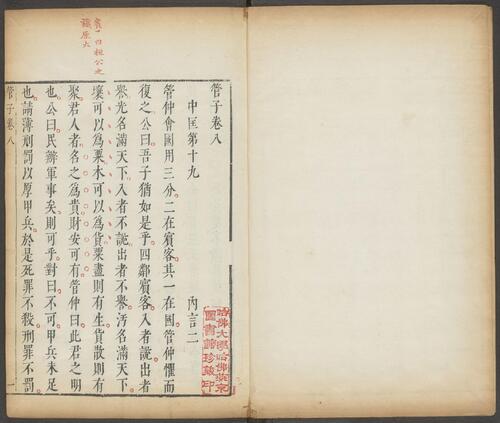 桓公之
識原大
管子卷八
中匡第十九 內言二
管仲會國用三分二在賓客其一在國管仲懼而
復之公曰吾子猶如是乎四鄰賓客入者說出者
譽光名滿天下入者不說出者不譽汚名滿天下
壤可以為粟木可以為貨粟盡則有生貨散則有
聚君人者名之為貴財安可有管仲曰此君之明
也公曰民辦軍事矣則可乎對曰不可甲兵未足
也請薄刑罰以厚甲兵於是死罪不殺刑罪不罰
管子卷八 一
哈佛大學哈佛燕京
圖書館珍藏印